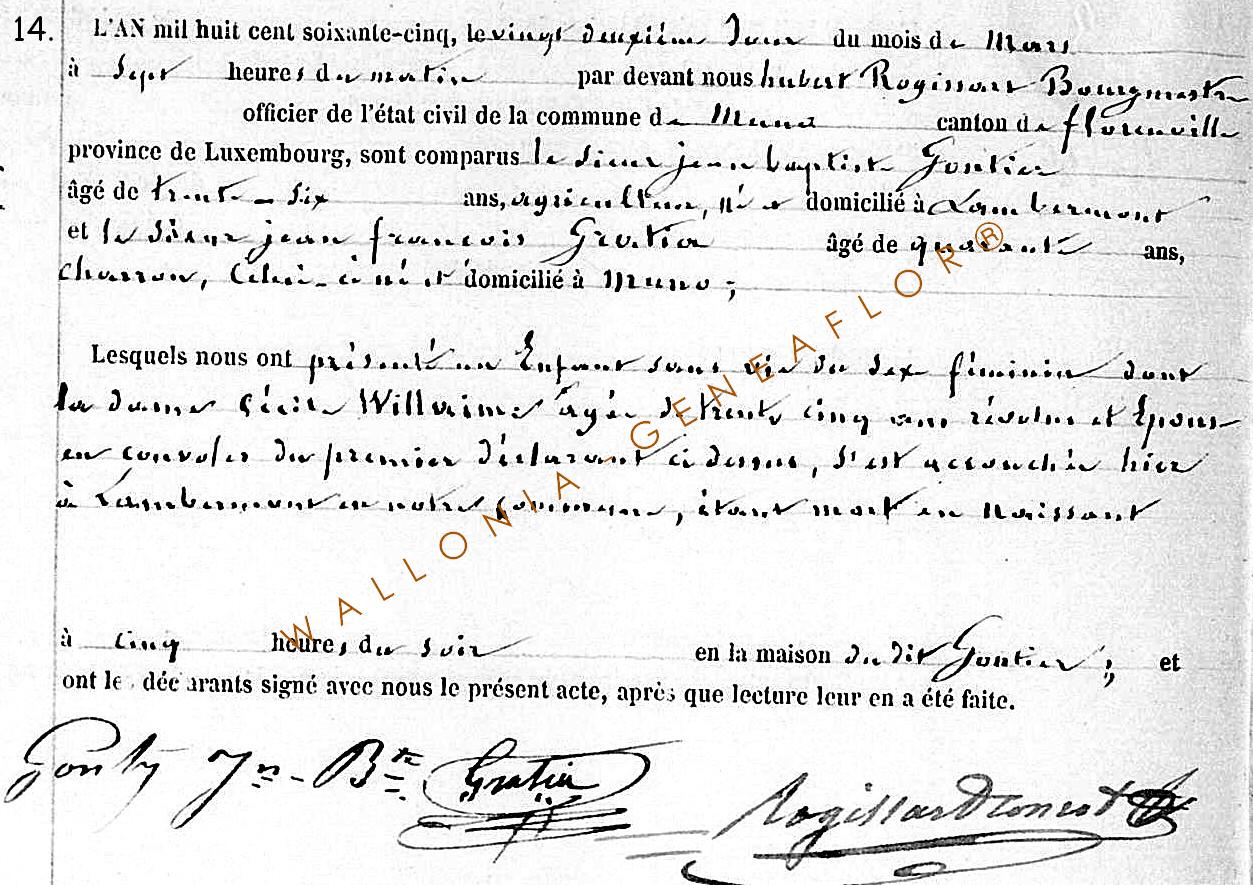 14. L'AN mil huit cent soixante-cinq, le vingt deuxième Jour du mois de Mars
à Sept heures du matin par devant nous hubert Rogissart Bourgmestre
officier de l'état civil de la commune de Muno canton de florenville
province de Luxembourg, sont comparus le Sieur jean baptiste Gontier
âgé de trente-Six ans, agriculteur, né et domicilié à Lambermont
et le Sieur jean françois Gratia âgé de quarante ans,
charron, Celui-ci né et domicilié à Muno ;
Lesquels nous ont présenté un Enfant sans vie du sexe féminin dont
la dame Cécile Willaime âgée de trente cinq ans révolus et Epouse
en convoles du premier déclarant ci dessus, s'est accouchée hier
à Lambermont en notre Commune, étant mort en Naissant
à Cinq heures du soir en la maison du dit Gontier ; et
ont les déclarants signé avec nous le présent acte, après que lecture leur en a été faite.
Gonty Jn-Bte Gratia Rogissart
WALLONIA GENEAFLOR®